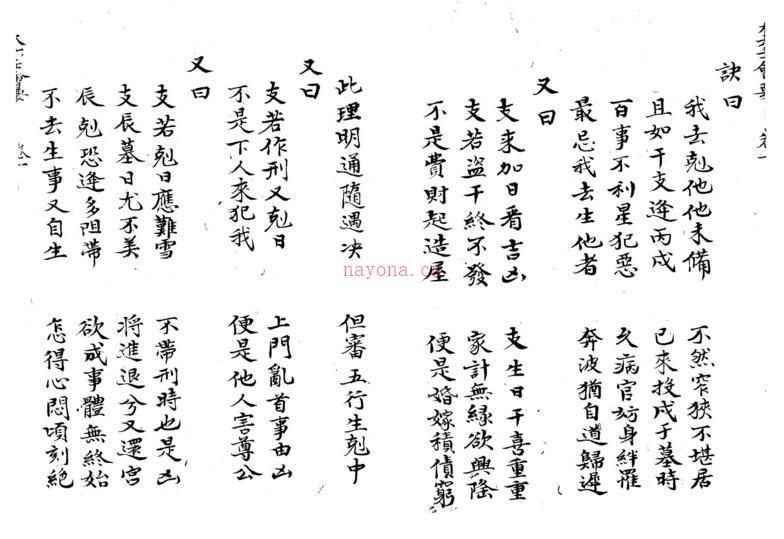 訣曰
我去剋他他未備　不然窄狹不堪居
且如干支逢丙戌　已來投戌于墓時
百事不利星犯惡　久病官妨身絆羅
最忌我去生他者　奔波猶自道歸遲
又曰
支来加日看吉凶　支生日干喜重重
支若盜干終不發　家計無緣欲興隆
不是費財起造屋　便是婚嫁積債窮
此理明通隨遇决　但審五行生剋中
又曰
支若作刑又剋日　上門亂首事由凶
不是下人來犯我　便是他人害尊公
又曰
支若剋日應難雪　不帶刑時也是凶
支辰墓日尤不美　將進退兮又還宮
辰剋恐逢多阻帶　欲成事體無終始
不去生事又自生　怎得心悶頃刻絶